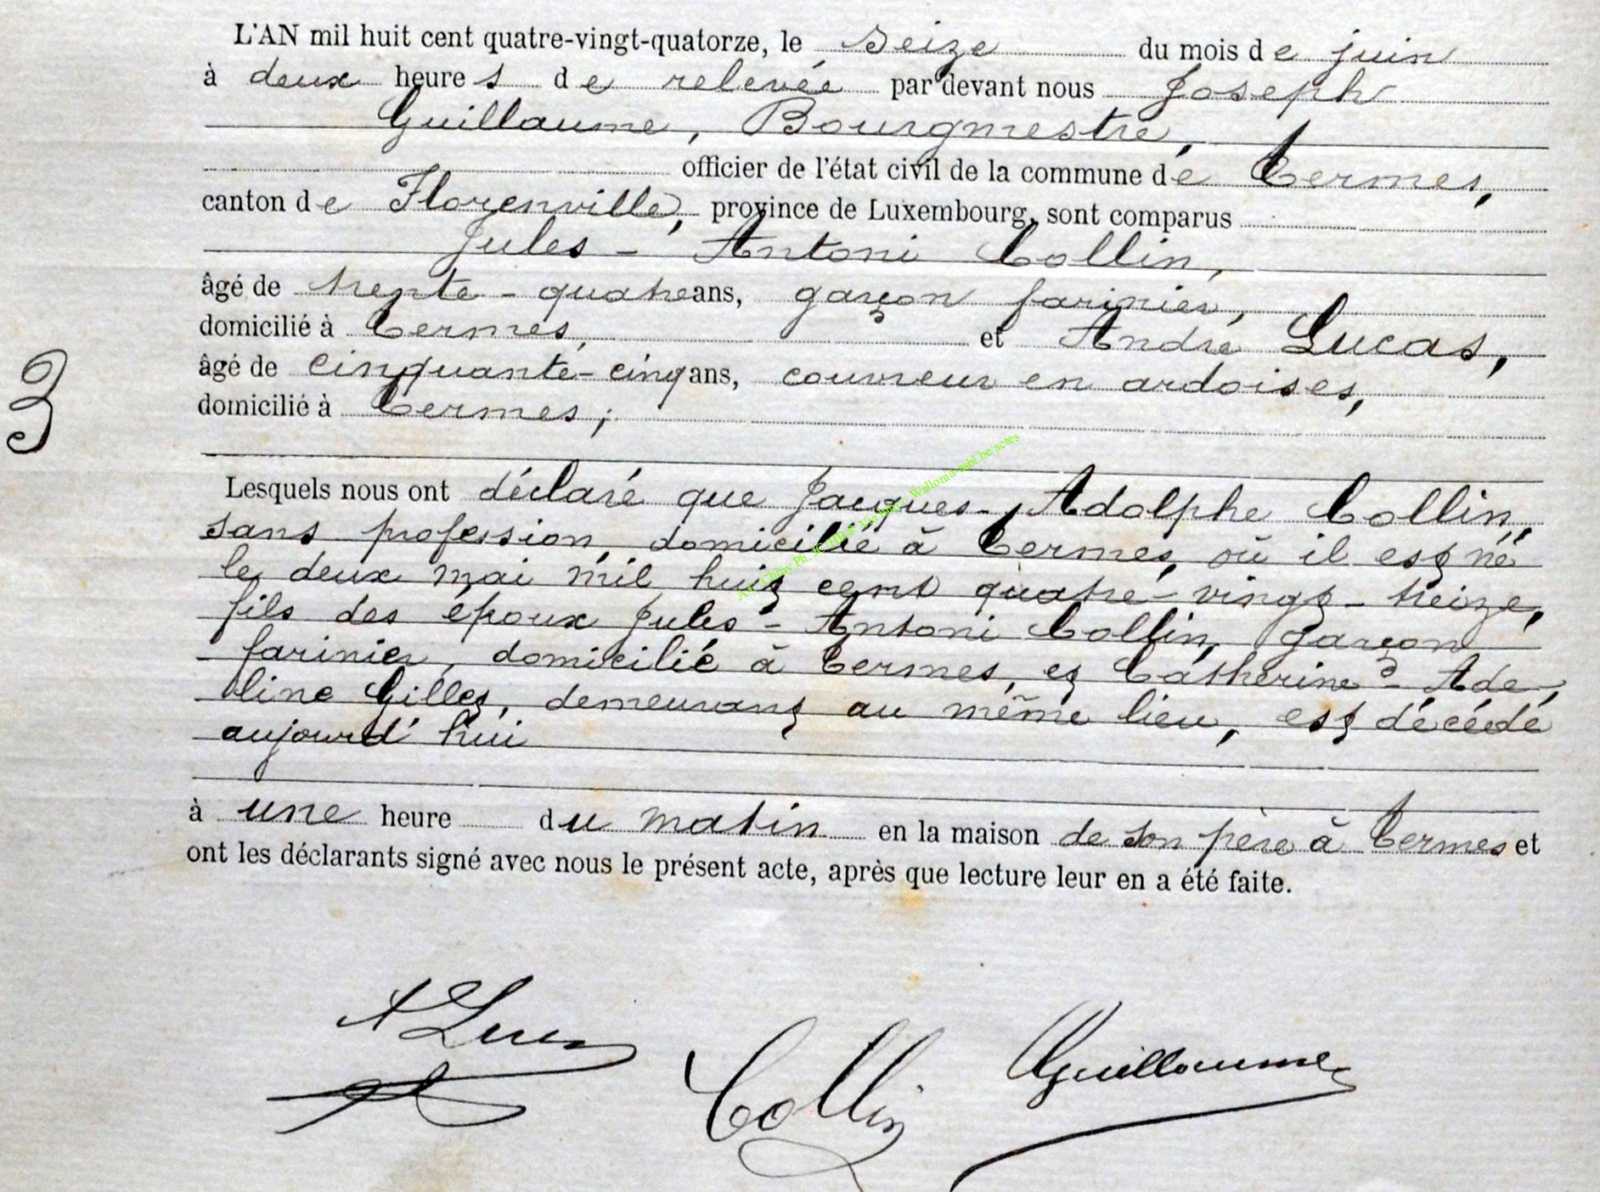 L'AN mil huit cent quatre-vingt-quatorze, le seize du mois de juin
à deux heures de relevée par devant nous Joseph
Guillaume, Bourgmestre,
officier de l'état civil de la commune de Termes,
canton de Florenville, province de Luxembourg, sont comparus
Jules - Antoni Collin,
âgé de trente-quatre ans, garçon farinier,
domicilié à Termes, et André Lucas,
âgé de cinquante-cinq ans, couvreur en ardoises,
domicilié à Termes;
3
Lesquels nous ont déclaré que Jacques-Adolphe Collin,
sans profession, domicilié à Termes, où il est né
le deux mai mil huit cent quatre-vingt-treize,
fils des époux Jules-Antoni Collin, garçon
farinier, domicilié à Termes, et Catherine-Ade-
line Gilles, demeurant au même lieu, est décédé
aujourd'hui
à une heure du matin en la maison de son père à Termes et
ont les déclarants signé avec nous le présent acte, après que lecture leur en a été faite.
A Lucas
Collin
Guillaume